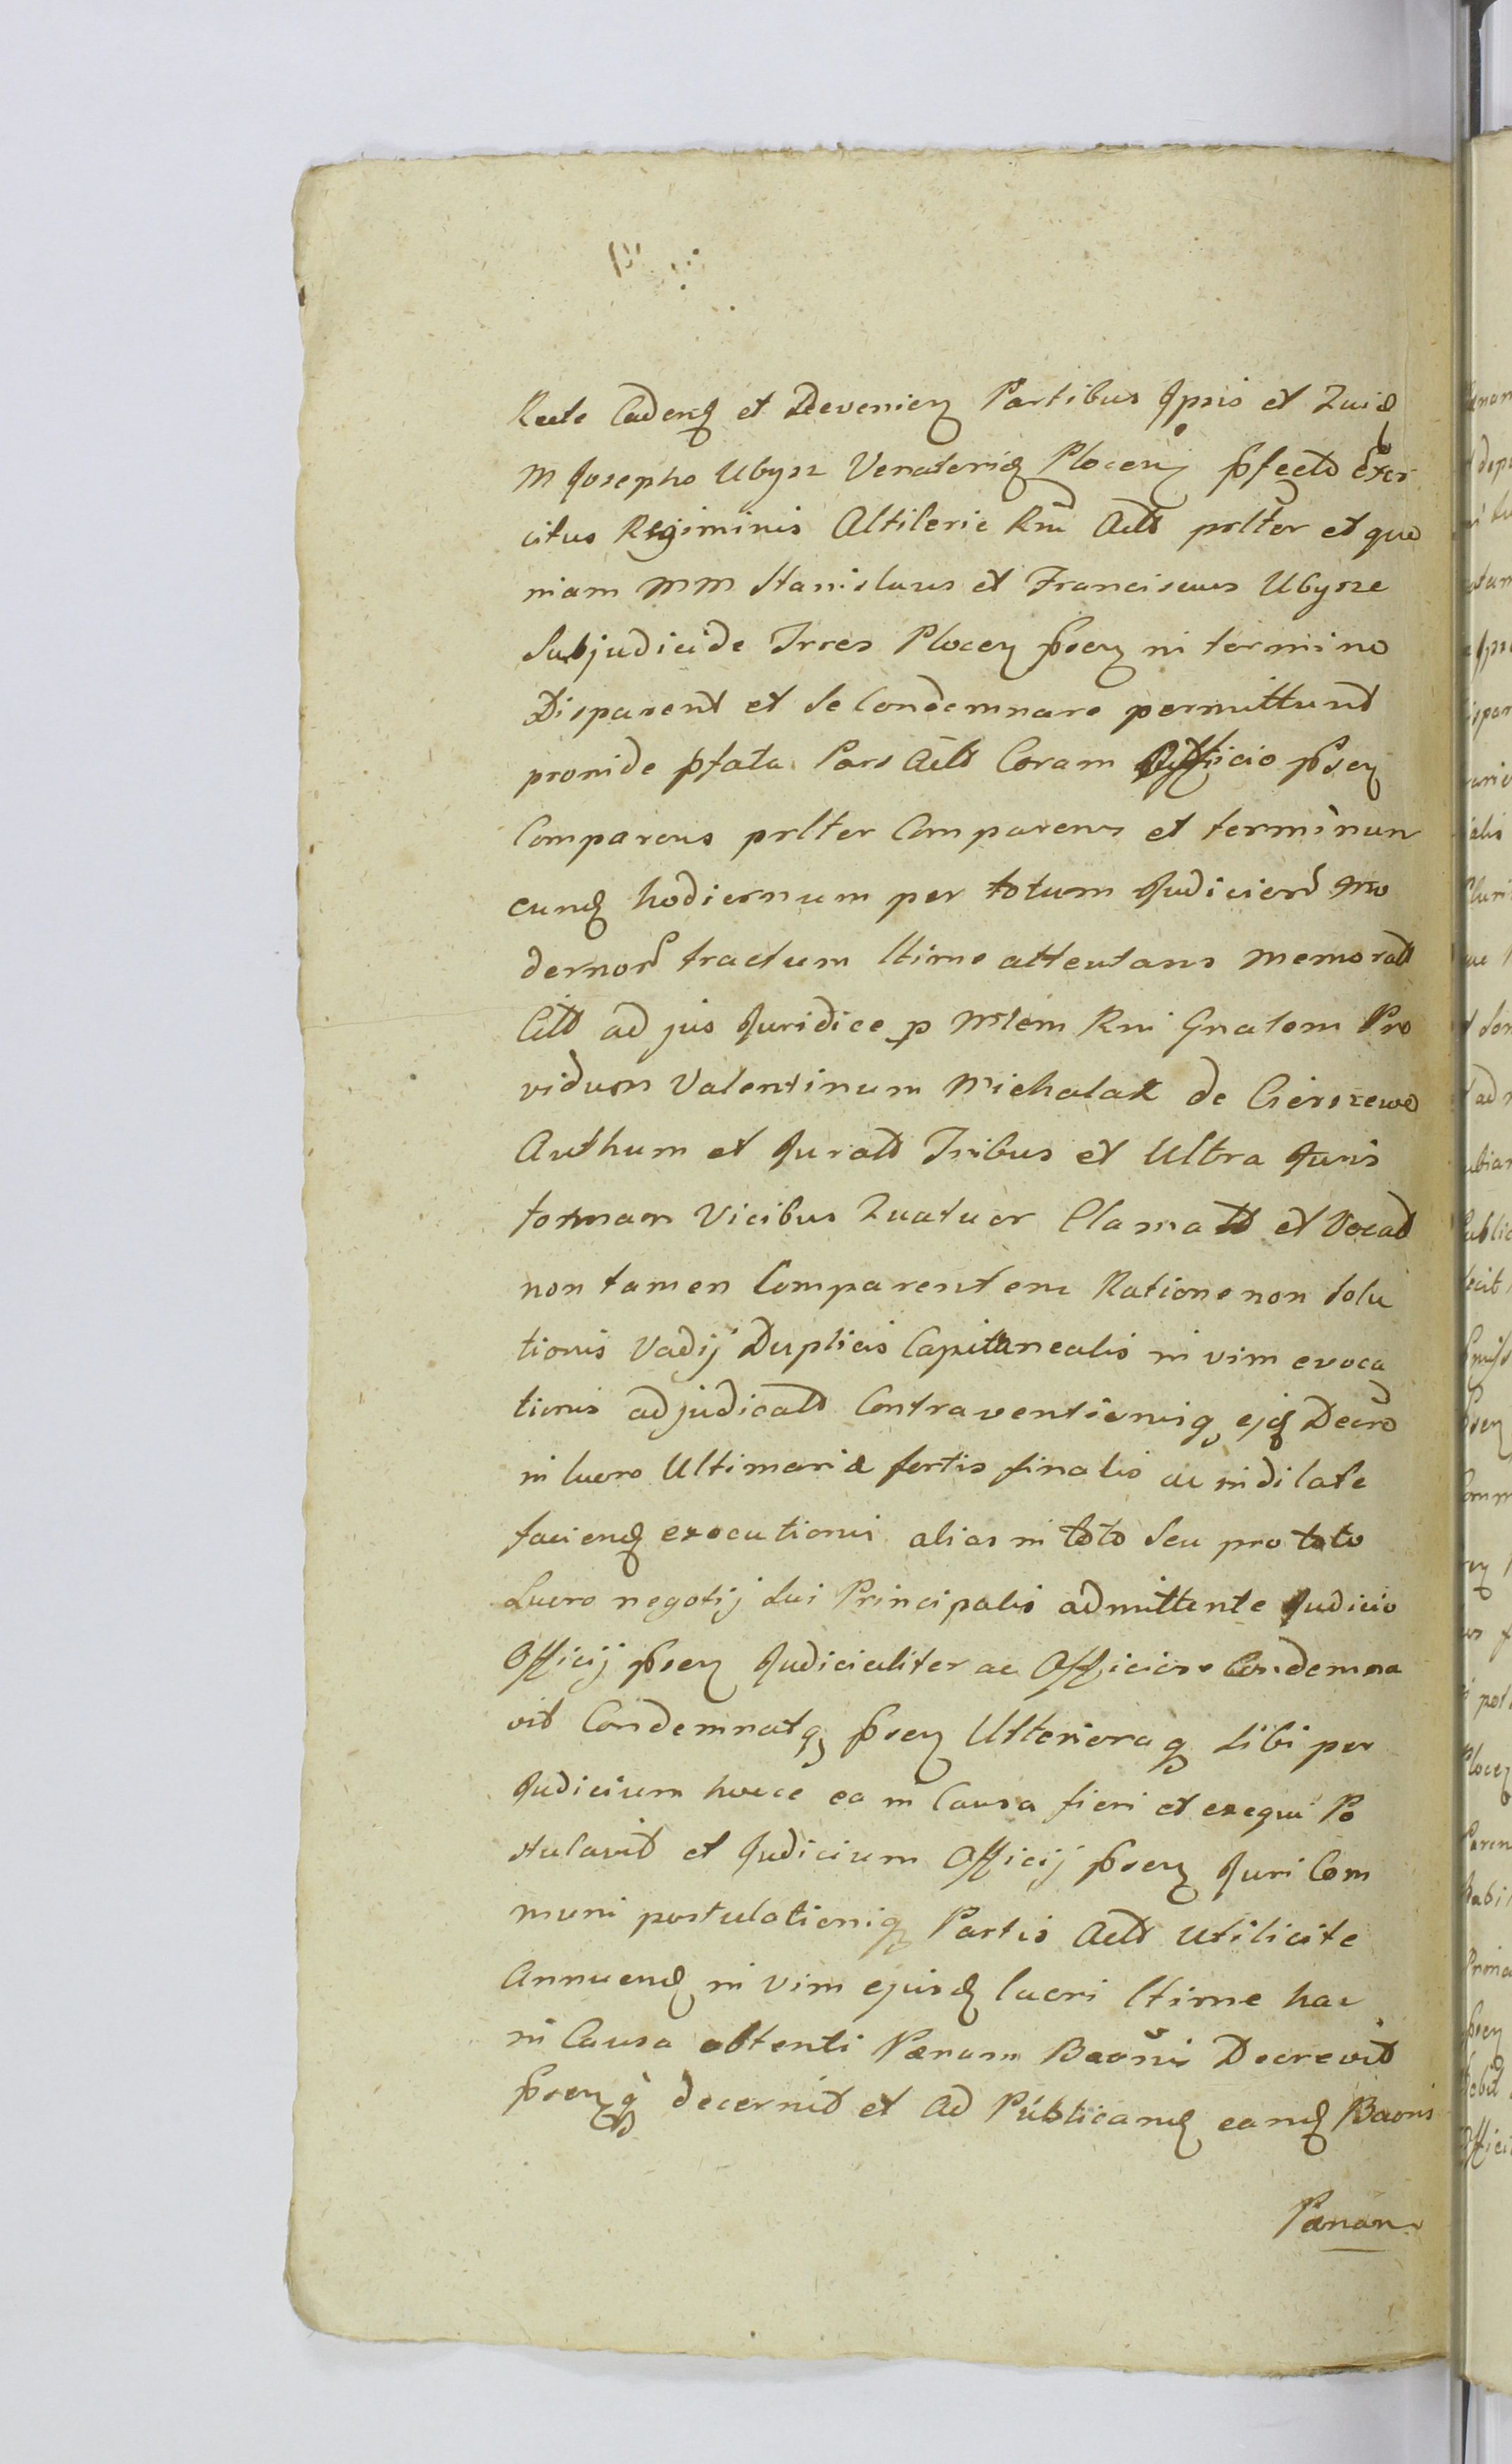 Recte Cadenq et Devenien Partibus Ipsis et Quid
M Josepho Ubysz Venatoriq Plocen pfecto Exer
citus Regiminis Altilerie Rni Actt psltter et quo
niam MM Stanislaus et Franciscus Ubysze
Subjudicide Trres Plocen psen in termino
Disparent et se Condemnare permittunt
proinde pfata Pars Actt Coram Officio psen
Comparens psltter Comparens et terminum
cunq hodiernum per totum Judicior mo
dernor tractum ltime attentans memoratt
Citt ad jus Juridice p Mrlem Rni Gnalem Pro
vidum Valentinum Michalak de Cierszewo
Authum et Juratt Tribus et Ultra Juris
formam Vicibus Quatuor Clamatt et Vocatt
non tamen Comparentem Ratione non Solu
tionis Vadij Duplicis Capitanealis in vim evoca
tionis adjudicatt Contraventionisq ejq Decro
in lucro Ultimariæ sortis finalis ac indilate
facienq executionis alias in toto Seu pro toto
Lucro negotij sui Principalis admittente Judicio
Officij psen Judicialiter ac Officiose Condemna
vit Condemnatq psen Ulterioraq Sibi per
Judicium hocce ea in Causa fieri et exequi Po
stulavit et Judicium Officij psen Juri Com
muni postulationiq Partis Actt Utilicite
Annuenq in vim ejusq lucri ltime hac
in Causa obtenti Pænam Baonis Decrevit
psenq decernit et ad Publicanq eanq Baonis
Pænam